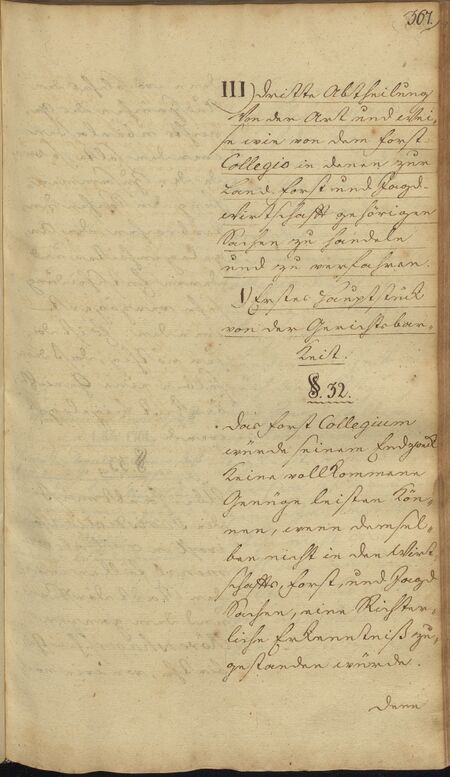 367.
III) Dritte Abtheilung
Von der Art und Wei,
se wie von dem Forst
Collegio in denen zur
Land, Forst und Jagd-
Wirtschafft gehörigen
Sachen zu handeln
und zu verfahren.
1) Erstes Hauptstück
von der Gerichtsbar,
keit.
§. 32.
Das Forst Collegium
würde seinem Endzweck
keine vollkommene
Genüge leisten kön,
nen, wenn demsel,
ben nicht in den Wirt
schaffts, Forst, und Jagd
Sachen, eine Richter,
liche Erkenntniß zu,
gestanden würde.
Denn